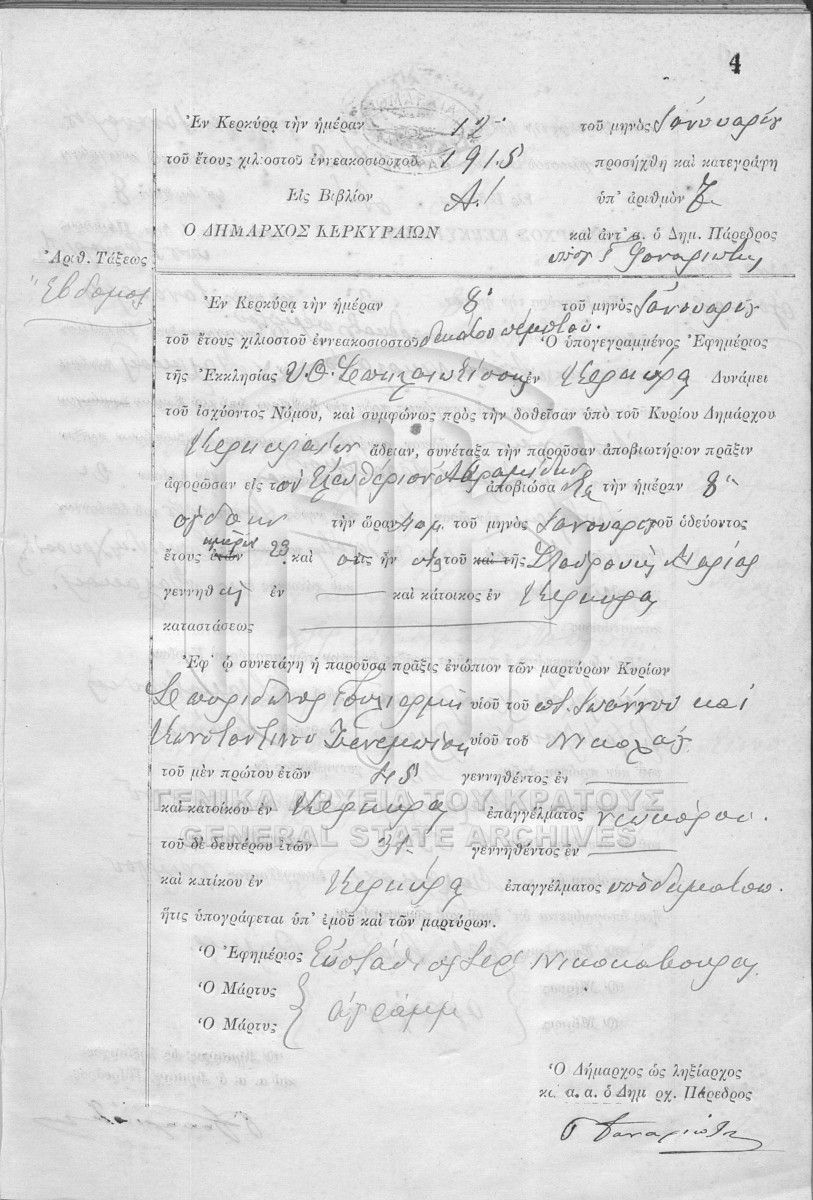 4
Ἐν Κερκύρᾳ τὴν ἡμέραν 12 τοῦ μηνὸς Ἰανουαρίου
τοῦ ἔτους χιλιοστοῦ ἐννεακοσιοστοῦ 1915 προσήχθη καὶ κατεγράφη
Εἰς Βιβλίον Α! ὑπ' ἀριθμὸν 7
Ο ΔΗΜΑΡΧΟΣ ΚΕΡΚΥΡΑΙΩΝ καὶ ἀντ' α. ὁ Δημ. Πάρεδρος
Ἀριθ. Τάξεως
Ἕβδομος
Ἐν Κερκύρᾳ τὴν ἡμέραν 8 τοῦ μηνὸς Ἰανουαρίου
τοῦ ἔτους χιλιοστοῦ ἐννεακοσιοστοῦ δεκάτου πέμπτου. Ὁ ὑπογεγραμμένος Ἐφημέριος
τῆς Ἐκκλησίας Υ.Θ. Σπηλαιωτίσσης ἐν Κερκύρᾳ Δυνάμει
τοῦ ἰσχύοντος Νόμου, καὶ συμφώνως πρὸς τὴν δοθεῖσαν ὑπὸ τοῦ Κυρίου Δημάρχου
Κερκυραίων ἄδειαν, συνέταξα τὴν παροῦσαν ἀποβιωτήριον πρᾶξιν
ἀφορῶσαν εἰς τὸν Ἐλευθέριον ἀποβιώσα τὴν ἡμέραν 8
ὀγδόην τὴν ὥραν τοῦ μηνὸς Ἰανουαρίου τοῦ ὁδεύοντος
ἔτους ἐτῶν ἡμερῶν 23 καὶ τοῦ καὶ τῆς Μαρίας
γεννηθ ἐν — καὶ κάτοικος ἐν Κερκύρᾳ
καταστάσεως —
Ἐφ' ᾧ συνετάγη ἡ παροῦσα πρᾶξις ἐνώπιον τῶν μαρτύρων Κυρίων
Σπυρίδωνος υἱοῦ τοῦ Ἰωάννου καὶ
Κωνσταντίνου υἱοῦ τοῦ Νικολάου
τοῦ μὲν πρώτου ἐτῶν 45 γεννηθέντος ἐν —
ΓΕΝΙΚΑ ΑΡΧΕΙΑ ΤΟΥ ΚΡΑΤΟΥΣ
καὶ κατοίκου ἐν Κερκύρᾳ ἐπαγγέλματος νεωκόρου.
GENERAL STATE ARCHIVES
τοῦ δὲ δευτέρου ἐτῶν γεννηθέντος ἐν —
καὶ κατίκου ἐν Κερκύρᾳ ἐπαγγέλματος ὑποδηματοπ.
ἥτις ὑπογράφεται ὑπ' ἐμοῦ καὶ τῶν μαρτύρων.
Ὁ Ἐφημέριος Εὐστάθιος Ἱερ
Ὁ Μάρτυς
ἀγράμμ
Ὁ Μάρτυς
Ὁ Δήμαρχος ὡς ληξίαρχος
κα α. α. ὁ Δημ ρχ. Πάρεδρος